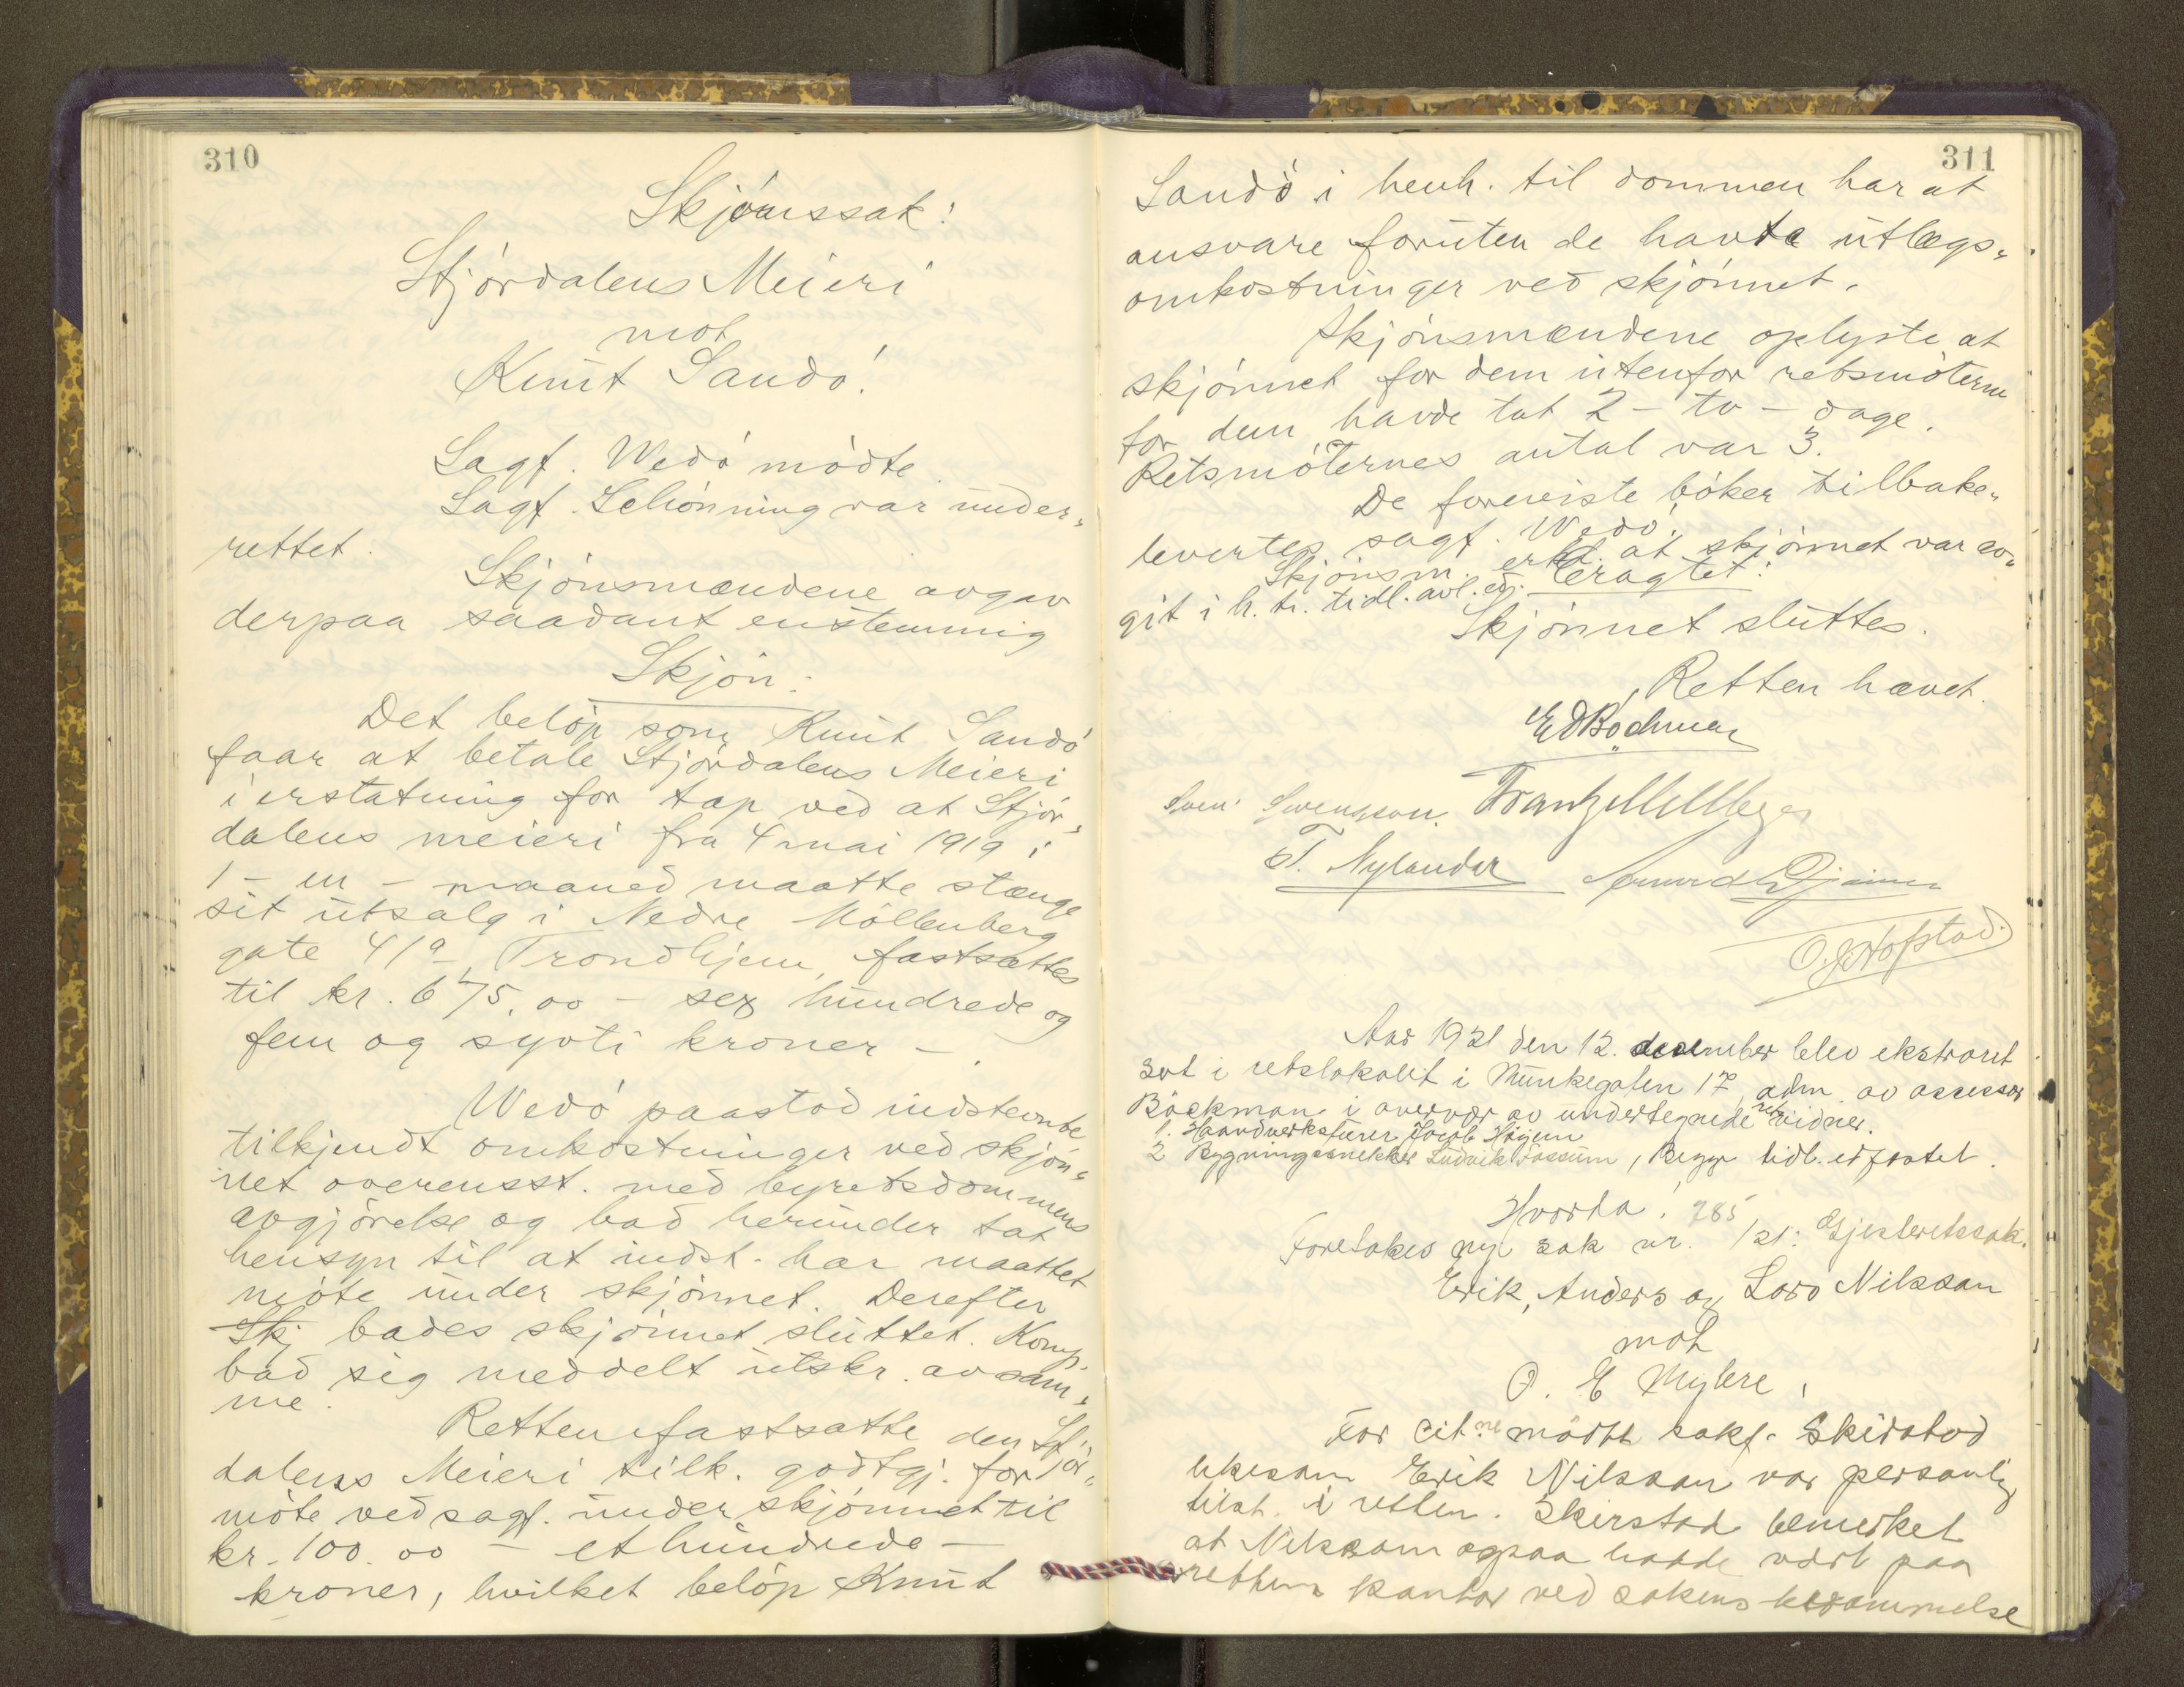 310
Skjønssak:
Stjørdalens Meieri
mot
Knut Sandø.
Sagf. Wedø mødte.
Sagf. Schønning var under-
rettet.
Skjønsmændene avgav
derpaa saadant enstemmig
Skjøn:
Det beløp som Knut Sandø
faar at betale Stjørdalens Meieri
i erstatning for tap ved at Stjør-
dalens meieri fra 4 mai 1919 i
1 - en - maaned maatte stænge
sit utsalg i Nedre Møllenberg
gate 41a, Trondhjem, fastsættes
til kr. 675,00 - sex hundrede og
fem og sytti kroner -.
Wedø paastod indstevnte
tilkjendt omkostninger ved skjøn-
net overensst. med byretsdommens
avgjørelse og bad herunder tat
hensyn til at indst. har maattet
møte under skjønnet. Derefter
Skj bades skjønnet sluttet. Komp.
bad sig meddelt utskr. av sam-
me.
Retten fastsatte den Stjør-
dalens Meieri tilk. godtgj. for
møte ved sagf. under skjønnet til
kr. 100.00 - et hundrede -
kroner, hvilket beløp Knut
311
Sandø i henh. til dommen har at
ansvare foruten de havte utlægs-
omkostninger ved skjønnet.
Skjønsmændene oplyste at
skjønnet for dem utenfor retsmøterne
for dem havde tat 2 - to - dage.
Retsmøternes antal var 3.
De foreviste bøker tilbake-
levertes sagf. Wedø.
Skjønsm. erkl. at skjønnet var av-
git i h. t. tidl. avl. ed. Eragtet:
Skjønnet sluttes.
Retten hævet.
EdBøchman
Sven Swensson. Frantz
T. Nylander
O. J. Hofstad.
Aar 1921 den 12. december blev ekstraret
sat i retslokalet i Munkegaten 17, adm. av assessor
Bøckman i overvær av undertegnede retsvidner.
1. Haandverksfører Jacob Høyem
2 Bygningssnekker Ludvik Fossum, Begge tidl. edfæstet.
Hvorda:
Foretokes ny sak nr. 785/21: Gjesteretssak.
Erik, Anders og Lars Nilsson
mot
O. E Myhre,
For cit.ne mødte sakf. Skirstad
likesom Erik Nilsson var personlig
tilst. i retten. Skirstad bemerket
at Nilsson ogsaa hadde vært paa
rettens kontor ved sakens berammelse